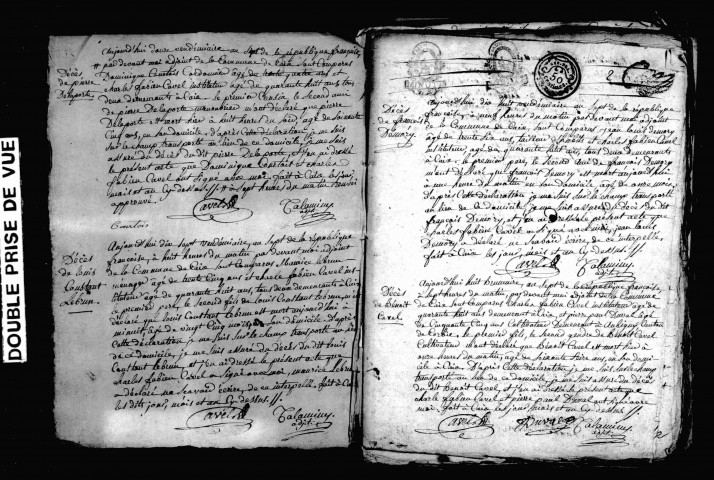 DOUBLE PRISE DE VUE
Décès
de pierre
Delaporte
Aujourd'hui douze vendémiaire an sept de la république française
par devant moi adjoint de la Commune de Coia sont Comparus
Dominique Courtois Cordonnier âgé de trente quatre ans et
charles fabien Cavel instituteur âgé de quarante huit ans, tous
deux demeurants à Coia, le premier Cousin, le second ami
de pierre delaporte, m'ont déclaré que pierre
Delaporte est mort hier à huit heures du soir, âgé de soixante
Cinq ans, en son domicile, d'après cette déclaration je me suis
sur le champ transporté au lieu de ce domicile, je me suis
assuré du décès du dit pierre Delaporte, et j'en ai dressé
le présent acte que Dominique Courtois et charles
fabien Cavel ont signé avec moi, fait à Coia, les jour,
mois et an cy dessus // à sept heures du matin
approuvé
Cavel
Talaminy
adjt.
Courtois
Décès
de louis
Constant
Lebrun
Aujourd'hui dix sept vendémiaire, an sept de la république
française, à huit heures du matin par devant moi adjoint
de la Commune de Coia sont Comparus Maurice Lebrun
ménager âgé de trente Cinq ans et charles fabien Cavel ins
tituteur âgé de quarante huit ans, tous deux demeurants à Coia
le premier père, le second ami de louis Constant Lebrun, m'ont
déclaré que louis Constant Lebrun est mort aujourd'hui à
minuit âgé de vingt Cinq mois en son domicile, d'après
cette déclaration je me suis sur le champ transporté au lieu
de ce domicile, je me suis assuré du décès du dit louis
Constant Lebrun, et j'en ai dressé le présent acte que
charles fabien Cavel a signé avec moi, maurice Lebrun
a déclaré ne savoir écrire, de ce interpellé, fait à Coia
les dits jour, mois et an cy dessus //.
Cavel
Talaminy
adjt.
2
Décès
de françois
Demory
Aujourd'hui dix huit vendémiaire an sept de la république
française, à neuf heures du matin par devant moi adjoint
de la Commune de Coia, sont Comparus, jean louis demory
âgé de trente six ans, et charles fabien Cavel
instituteur, âgé de quarante huit ans, tous deux demeurants
à Coia, le premier père, le second ami de françois Demory
m'ont déclaré que françois Demory est mort aujourd'hui
à une heure du matin en son domicile âgé de onze mois,
d'après cette déclaration je me suis sur le champ transporté
au lieu de ce domicile, je me suis assuré du décès du dit
françois Demory, et j'en ai dressé le présent acte que
charles fabien Cavel a signé avec moi, jean louis
Demory a déclaré ne savoir écrire, de ce interpellé,
fait à Coia les jour, mois et an cy dessus //.
Cavel
Talaminy
adjt.
Décès
de Benoit
Cavel
Aujourd'hui huit brumaire, an sept de la république française
à sept heures du matin, par devant moi adjoint de la Commune
de Coia sont Comparus charles fabien Cavel instituteur âgé de
quarante huit ans demeurant à Coia, et pierre paul Duval âgé
de Cinquante Cinq ans Cultivateur demeurant à
le premier fils, le second gendre de Benoit Cavel
Cultivateur m'ont déclaré que Benoit Cavel est mort hier à
onze heures du matin, âgé de soixante treize ans, en son domi
cile à Coia. D'après cette déclaration, je me suis sur le champ
transporté au lieu de ce domicile, je me suis assuré du décès
du dit Benoit Cavel, et j'en ai dressé le présent acte que
charles fabien Cavel et pierre paul Duval ont signé avec
moi, fait à Coia les jour, mois et an cy dessus //.
Cavel
Duval
Talaminy
adjt.